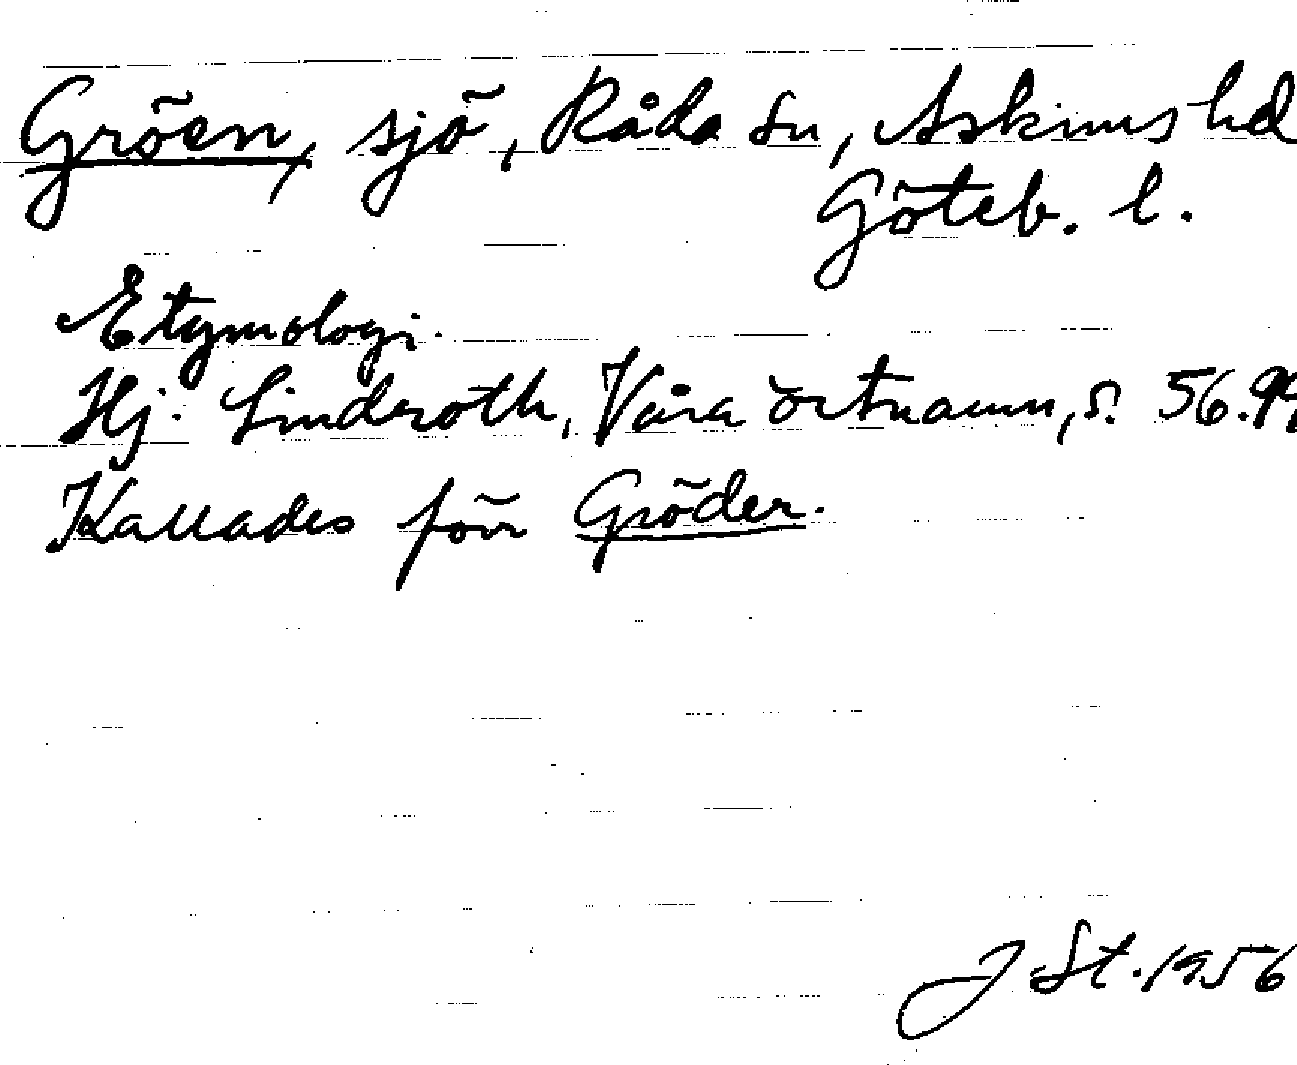 Gröen, sjö, Råda sn, Askims hd
Göteb. l.
Etymologi.
Hj. Lindroth, Våra ortnamn, s. 56.
Kallades förr Gröder.
J St. 1956